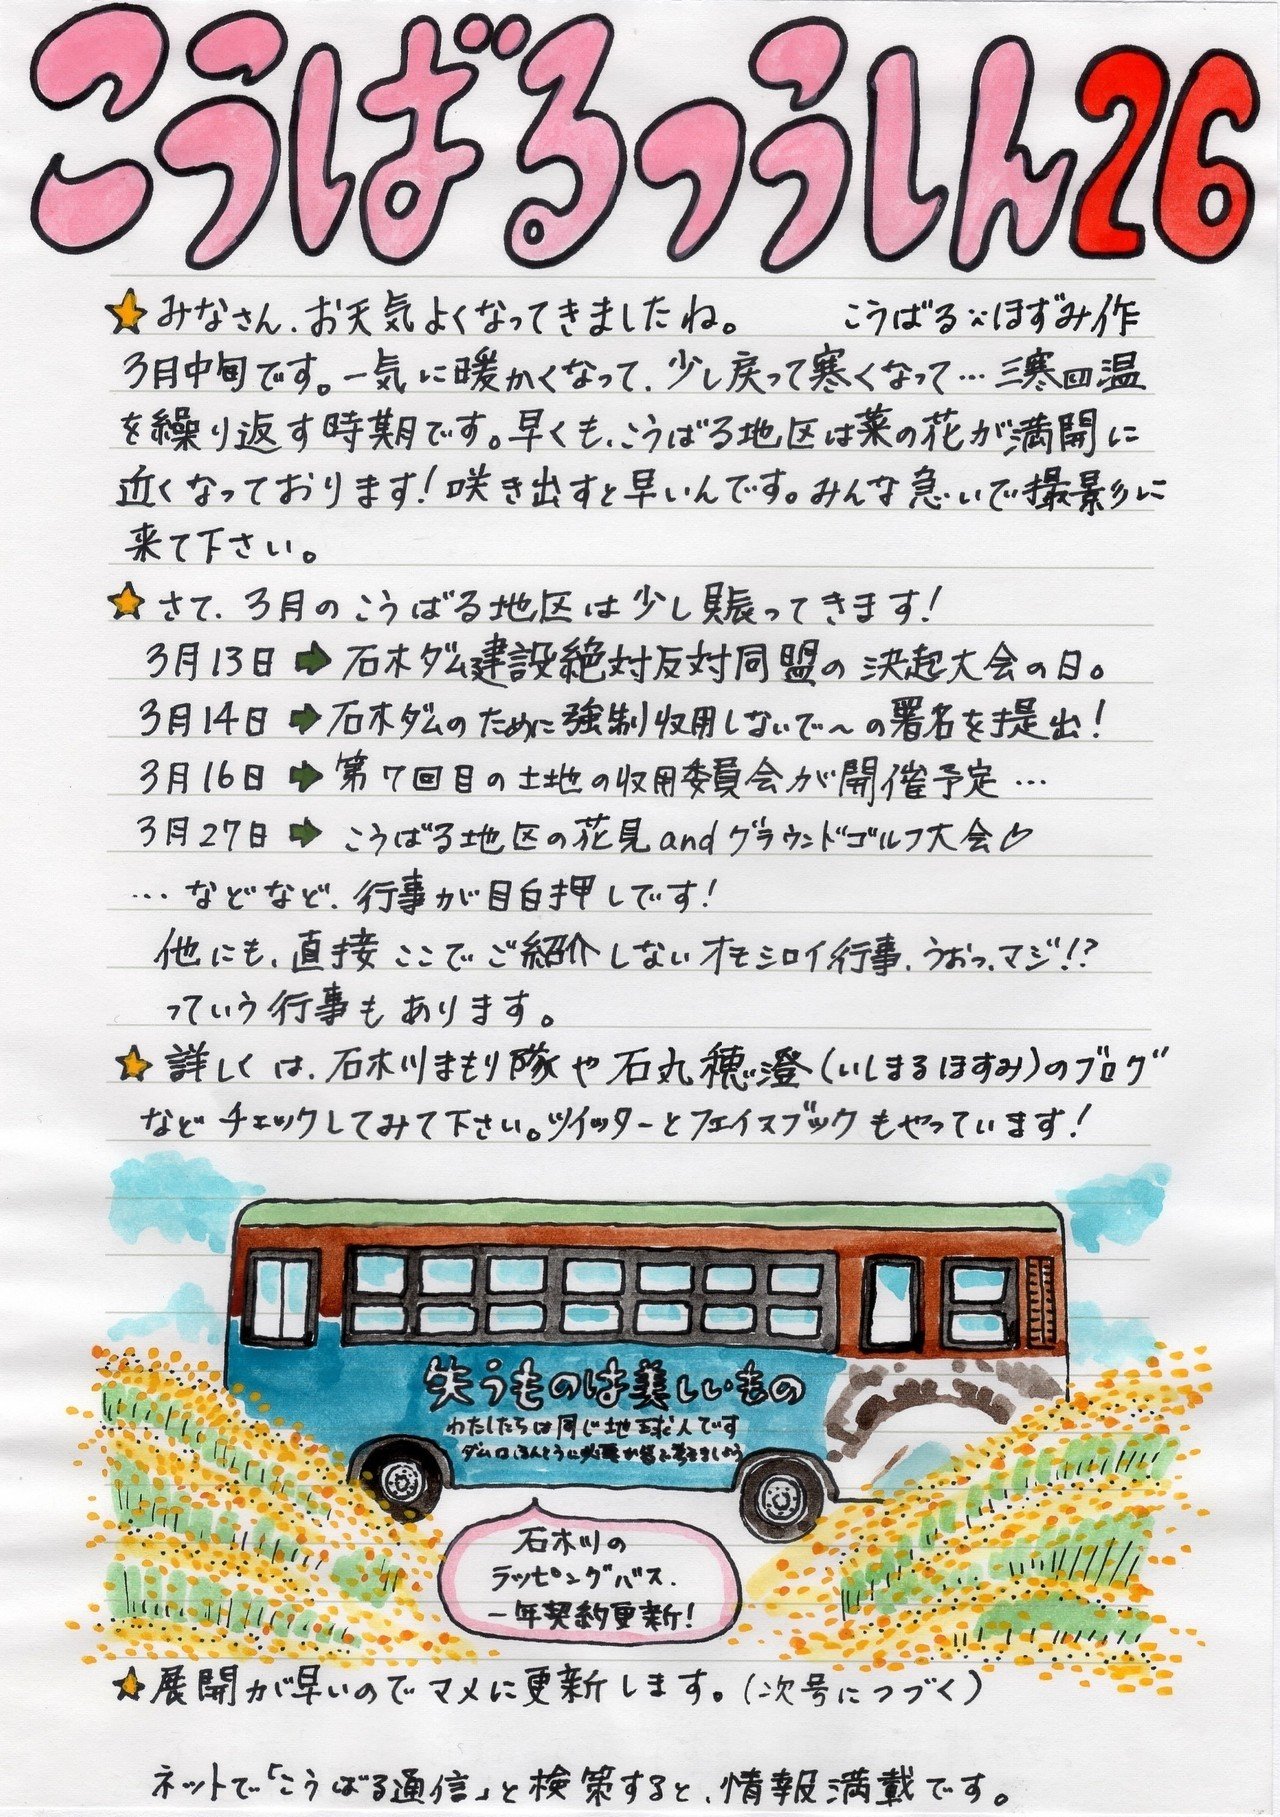 こうばるつうしん26
みなさん、お天気よくなってきましたね。 こうばる:ほずみ作
3月中旬です。一気に暖かくなって、少し戻って寒くなって…三寒四温
を繰り返す時期です。早くも、こうばる地区は菜の花が満開に
近くなっております!咲き出すと早いんです。みんな急いで撮影に
来て下さい。
さて、3月のこうばる地区は少し賑ってきます!
3月13日➡石木ダム建設絶対反対同盟の決起大会の日。
3月14日➡石木ダムのために強制収用しないで〜の署名を提出!
3月16日➡第7回目の土地の収用委員会が開催予定…
3月27日➡こうばる地区の花見andグラウンドゴルフ大会♡
…などなど、行事が目白押しです!
他にも、直接ここでご紹介しないオモシロイ行事、うおっ、マジ!?
っていう行事もあります。
詳しくは、石木川まもり隊や石丸穂澄(いしまるほずみ)のブログ
などチェックしてみて下さい。ツイッターとフェイスブックもやっています!
失うものは美しいもの
わたしたちは同じ地球人です
ダムはほんとうに必要か皆で考えましょう
石木川の
ラッピングバス、
一年契約更新!
展開が早いのでマメに更新します。(次号につづく)
ネットで「こうばる通信」と検策すると、情報満載です。